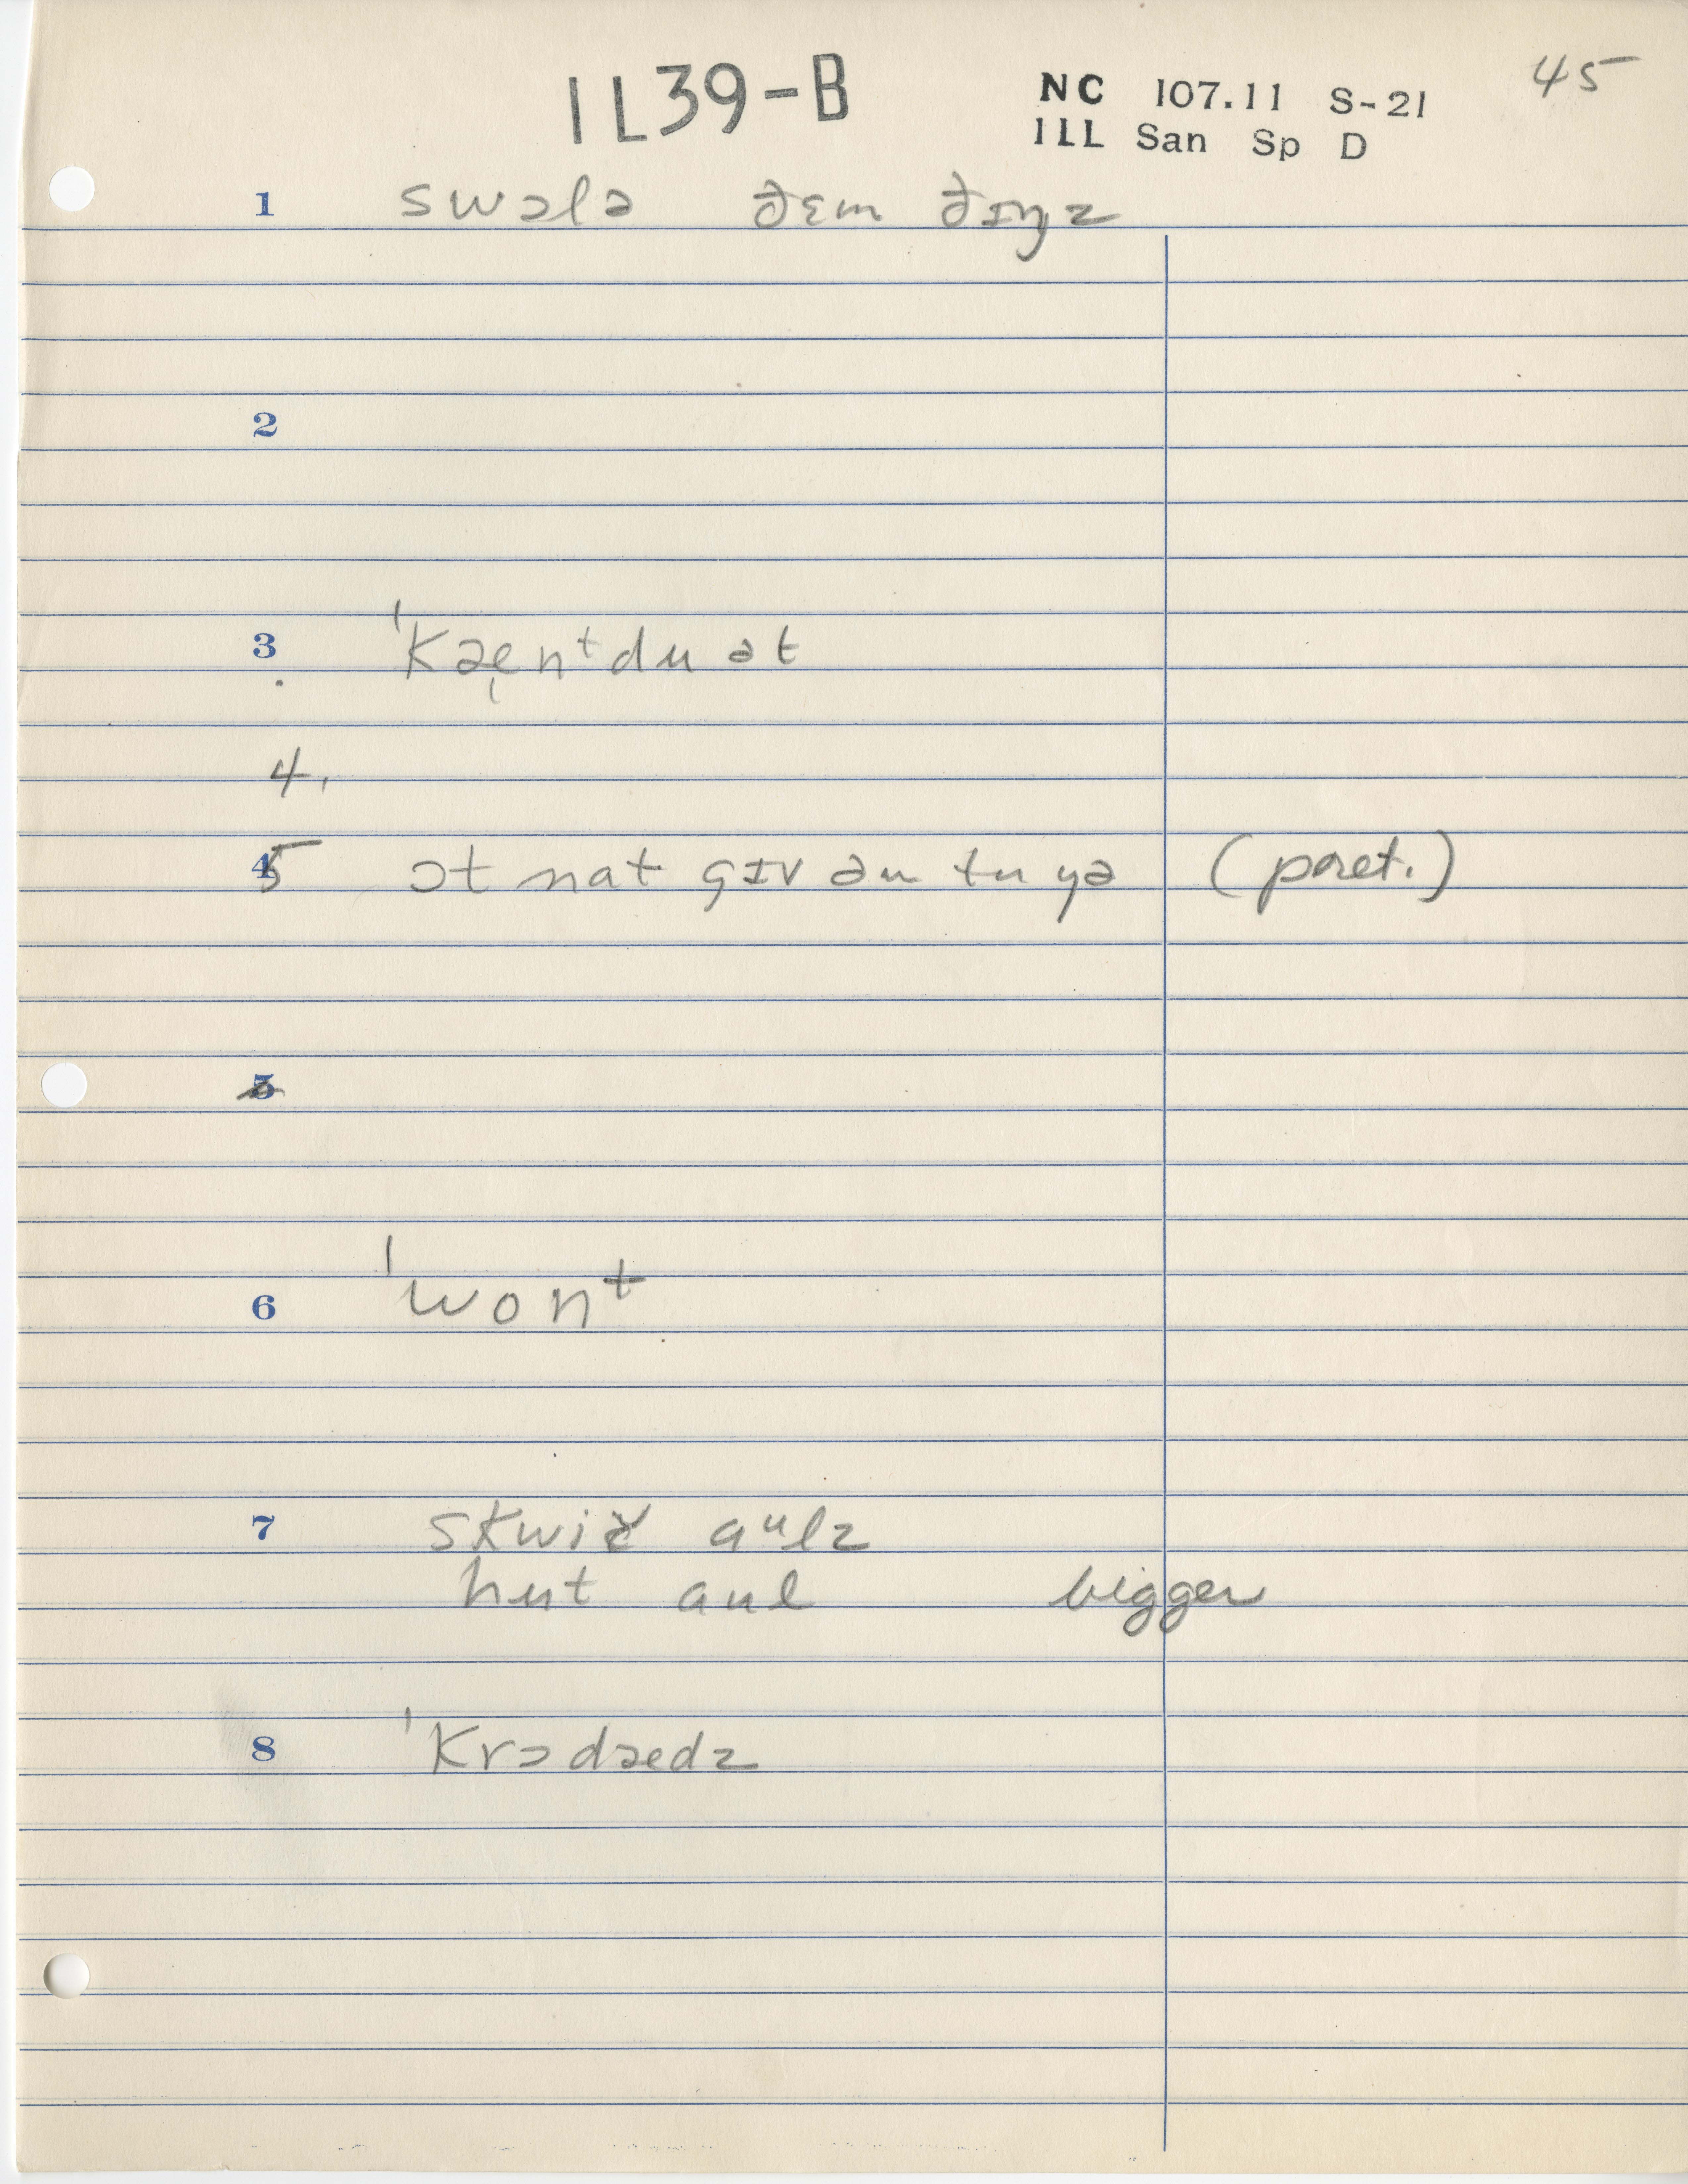 IL39-B
NC 107.11 S-21 45
ILL San Sp D
1 swɔlə ðɛm ðɪŋz
2
3 ˈkæ̨nᵗdu ət
4.
5 ɔt nat gɪv ən tu yə (pret.)
5
6 ˈwonᵗ
7 skwič aᵘlz
hut aul bigger
8 ˈkrɔdædz